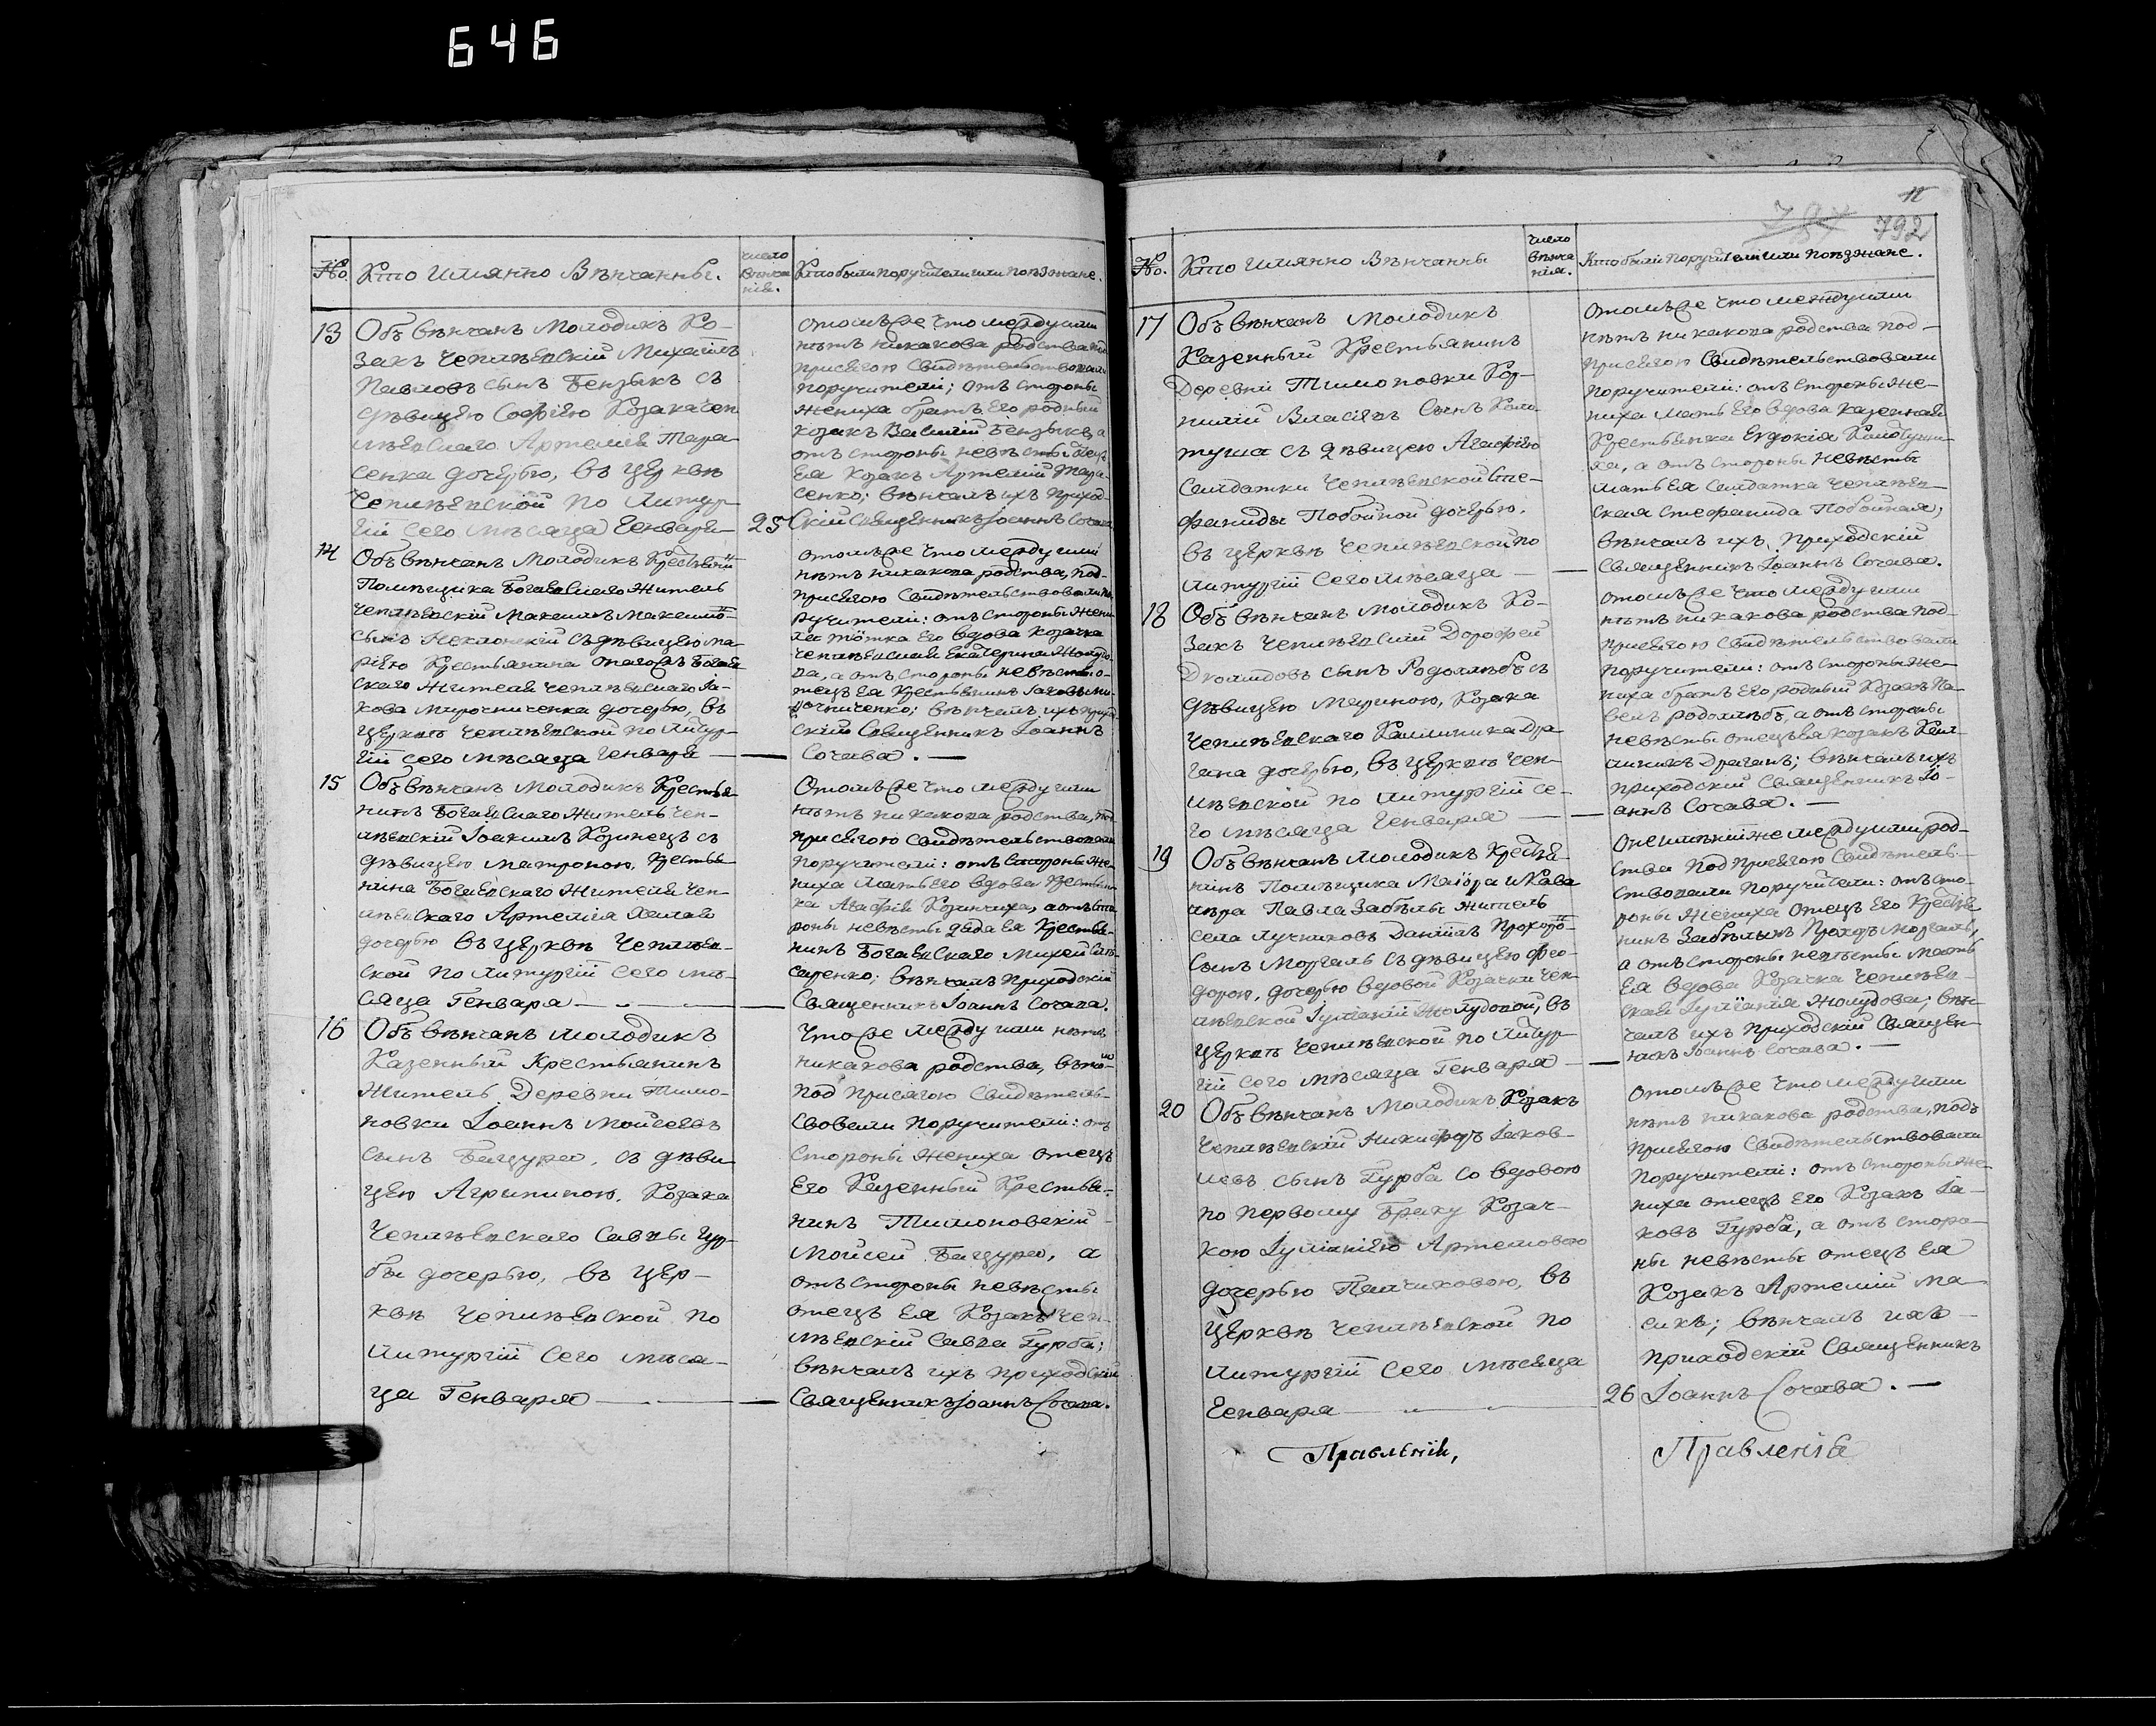 646
No.
Кто имянно Вѣнчанны.
число
Вѣнча
нія.
Кто были поручители или поѣзжане.
13
Объ вѣнчанъ Молодикъ Ко-
закъ Чеплѣевскій Михаилъ
Павловъ сынъ Бензыкъ съ
дѣвицею Софіею Козака Чеп
лѣевскаго Артемія Тара
сенка дочерью, въ церквѣ
Чеплѣевской по Литур
гіи сего мѣсяца Генваря
25
отомъ же что между ими
нѣтъ никакова родства под
присягою Свидѣтельствовали
поручители; отъ стороны
жениха братъ его родный
козакъ Василій Бензыкъ, а
отъ стороны невѣсты отецъ
ея козакъ Артемій Тара-
сенко; вѣнчалъ ихъ приход-
скій священникъ Іоаннъ Сочава
14
Объ вѣнчанъ Молодикъ Крестьянин
Помѣщика Богаевскаго житель
Чеплѣевскій Максимъ Максимо-
сынъ съ дѣвицею ма-
ріею Крестьянина онагожъ Богаев
скаго жителя чеплѣевскаго Іа-
кова Мирочниченка дочерью, въ
церквѣ Чеплѣевской по Литур-
гіи сего мѣсяца Генваря
отомъ же что между ими
нѣтъ никакова родства, под-
присягою Свидѣтельствовали по
ручители: отъ стороны жени
ха тётка его вдова козачка
чеплѣевская Екатерина
ва, а отъ стороны невѣсты о-
тецъ ея крестьянинъ Іаковъ Ми
рочниченко; вѣнчалъ ихъ приход
скій Священникъ Іоаннъ
Сочава.
15
Объ вѣнчанъ Молодикъ Крестья-
нинъ Богаевскаго житель чеп-
лѣевскій Іоакимъ Козинецъ съ
дѣвицею матроною, крестья
нина Богаевскаго жителя Чеп-
лѣевскаго Артемія
дочерью въ церквѣ Чеплѣев-
ской по литургіи сего мѣ-
сяца Генваря
Отомъ же что между ими
нѣтъ никакова родства, под
присягою свидѣтельствовали
поручители: отъ стороны же-
ниха мать его вдова крестьян
ка Агафія Козинчиха, а отъ сто
роны невѣсты дѣда ея крестья-
нинъ Богаевскаго Михей
саренко; вѣнчалъ приходскій
Священникъ Іоаннъ Сочава.
16
Объ вѣнчанъ молодикъ
Казенный Крестьянинъ
житель Деревни Тимо-
новки Іоаннъ Моисеевъ
сынъ Бацура, съ дѣви
цею Агрипиною, Козака
Чеплѣевскаго Саввы Гур
бы дочерью, въ цер-
квѣ Чеплѣевской по
литургіи сего мѣся-
ца Генваря
Что же между ими нѣтъ
никакова родства, въ том
под присягою Свидѣтель-
свовали поручители: отъ
стороны жениха отецъ
его Казенный Крестья-
нинъ Тимоновскій
Моисей Бацура, а
отъ стороны невѣсты
отецъ ея Козакъ Чеп-
лѣевскій Савва Гурба;
вѣнчалъ ихъ приходскій
Священникъ Іоаннъ Сочава.
792
No.
Кто имянно Вѣнчанны
число
вѣнча
нія.
Кто были поручители или поѣзжане.
17
Объ вѣнчанъ молодикъ
Казенный Крестьянинъ
Деревни Тимоновки Кор-
нилій Власіевъ Сынъ Коло
туша съ дѣвицею Агафіею
Салдатки Чеплѣевской Сте-
фаниды Побойной дочерью,
въ церквѣ Чеплѣевской по
литургіи сего мѣсяца
отомъ же что между ими
нѣтъ никакова родства под-
присягою Свидѣтельствовали
поручители: отъ стороны же-
ниха мать его вдова казенная
Крестьянка Евдокія Колотуши-
ха, а отъ стороны невѣсты
мать ея Салдатка чеплѣев-
ская Стефанида Побойная;
вѣнчалъ ихъ приходскій
Священникъ Іоаннъ Сочава.
18
Объ вѣнчанъ молодикъ Ко-
закъ Чеплѣевскій Дорофей
Диомидовъ сынъ Родолѣбъ съ
дѣвицею Мариною, Козака
Чеплѣевскаго Каллиника Дра
гана дочерью, въ церквѣ Чеп-
лѣевской по литургіи се-
го мѣсяца Генваря
отомъ же что между ими
нѣтъ никакова родства под-
присягою свидѣтельствовали
поручители: отъ стороны же-
ниха братъ его родный козакъ Па-
велъ родолѣбъ, а отъ стороны
невѣсты отецъ ея козакъ Кал-
линикъ Драганъ; вѣнчалъ ихъ
приходскій Священникъ Іо-
аннъ Сочава.
19
Объ вѣнчанъ молодикъ Крестья-
нинъ Помѣщика Маіора и Кава
лѣра Павла Забѣлы житель
села Лучниковъ Даніилъ Прохоро-
Сынъ Моргаль съ дѣвицею Фео-
дорою, дочерью вдовой козачки Чеп-
лѣевской Іуліаніи Жолудовой, въ
церквѣ Чеплѣевской по Литур-
гіи сего мѣсяца Генваря
О неимѣніи же между ими род-
ства под присягою Свидѣтель-
ствовали поручители: отъ сто-
роны жениха отецъ его крестья
нинъ Забѣлынъ Прохоръ Моргаль,
а отъ стороны невѣсты мать
ея вдова козачка Чеплѣев-
ская Іуліанія Жолудова; вѣн-
чалъ ихъ приходскій Священ-
никъ Іоаннъ Сочава.
20
Объ вѣнчанъ Молодикъ Козакъ
Чеплѣевскій Никифоръ Іаков-
левъ сынъ Гурба со вдовою
по первому браку Козач-
кою Іуліаніею Артемовою
дочерью Палчиковою, въ
церквѣ Чеплѣевской по
литургіи сего мѣсяца
Генваря
26
отомъ же что между ими
нѣтъ никакова родства, подъ
присягою Свидѣтельствовали
поручители: отъ стороны же-
ниха отецъ его Козакъ Іа-
ковъ Гурба, а отъ сторо-
ны невѣсты отецъ ея
Козакъ Артемій Ма-
сикъ; вѣнчалъ ихъ
приходскій Священникъ
Іоаннъ Сочава.
Правленій,
Правленія